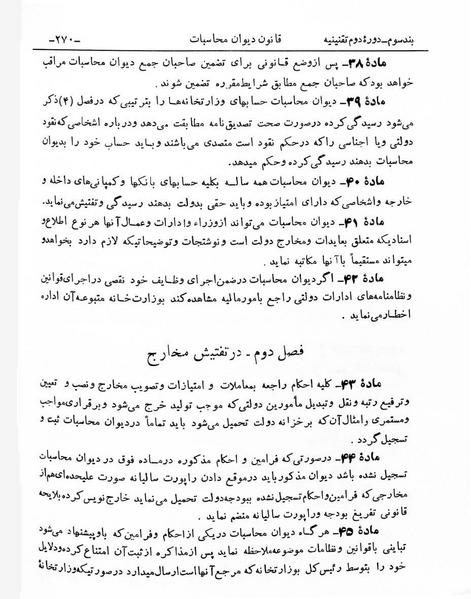 بندسوم ـ دورهٔ دوم تقنینیه قانون دیوان محاسبات ـ۲۷۰ـ
مادهٔ ۳۸ـ پس ازوضع قانونی برای تضمین صاحبان جمع دیوان محاسبات مراقب
خواهد بود که صاحبان جمع مطابق شرایط مقرره تضمین شوند .
مادهٔ ۳۹ـ دیوان محاسبات حسابهای وزارتخانه‌ها را بترتیبی که درفصل (۴) ذکر
می‌شود رسیدگی کرده درصورت صحت تصدیق نامه مطابقت می‌دهد و درباره اشخاصی که نقود
دولتی ویا اجناسی راکه درحکم نقود است متصدی می‌باشند وباید حساب خود را بدیوان
محاسبات بدهند رسیدگی کرده وحکم میدهد.
مادهٔ ۴۰ـ دیوان محاسبات همه ساله بکلیه حسابهای بانکها وکمپانی‌های داخله و
خارجه واشخاصی که دارای امتیاز بوده وباید حقی بدولت بدهند رسیدگی وتفتیش می‌نماید.
مادهٔ ۴۱ـ دیوان محاسبات می‌تواند ازوزراء وادارات وعمال آنها هر نوع اطلاع و
اسنادیکه متعلق بعایدات ومخارج دولت است ونوشتجات وتوضیحاتیکه لازم دارد بخواهد و
میتواند مستقیماً باآنها مکاتبه نماید .
مادهٔ ۴۲ـ اگر دیوان محاسبات درضمن اجرای وظایف خود نقصی دراجرای قوانین
ونظامنامه‌های ادارات دولتی راجع بامور مالیه مشاهده کند بوزارت خانه متبوعه آن اداره
اخطار می‌نماید .
فصل دوم ـ در تفتیش مخارج
مادهٔ ۴۳ـ کلیه احکام راجعه بمعاملات و امتیازات وتصویب مخارج ونصب و تعیین
وترفیع رتبه ونقل وتبدیل مأمورین دولتی که موجب تولید خرج می‌شود وبرقراری مواجب
ومستمری وامثال آن که برخزانه دولت تحمیل می‌شود باید تماماً دردیوان محاسبات ثبت و
تسجیل گردد .
مادهٔ ۴۴ـ درصورتی که فرامین و احکام مذکوره درماده فوق در دیوان محاسبات
تسجیل نشده باشد دیوان مذکور باید درموقع دادن راپورت سالیانه صورت علیحده‌ای هم از
مخارجی که فرامین واحکام تسجیل نشده ببودجه دولت تحمیل می‌نماید خارج نویس کرده بلایحه
قانونی تفریغ بودجه وراپورت سالیانه منضم نماید .
مادهٔ ۴۵ـ هرگاه دیوان محاسبات دریکی ازاحکام وفرامین که باو پیشنهاد می‌شود
تباینی باقوانین ونظامات موضوعه ملاحظه نماید پس ازمذاکره ازثبت آن امتناع کرده ودلایل
خود را بتوسط رئیس کل بوزارتخانه که مرجع آنها است ارسال میدارد درصورتیکه وزارتخانهٔ